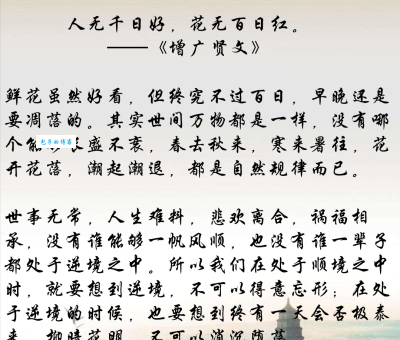 人无千日好，花无百日红。
——《增广贤文》
鲜花虽然好看，但终究不过百日，早晚还是
要凋落的。其实世间万物都是一样，没有哪
个能 盛不衰，春去秋来，寒来暑往，花
开花落，潮起潮退，都是自然规律而已。
世事无常，人生难料，悲欢离合，祸福相
承，没有谁能够一帆风顺，也没有谁一辈子
都处于逆境之中。所以我们在处于顺境之中
时，就要想到逆境，不可以得意忘形；在处
于逆境的时候，也要想到终有一天会否极泰
来，柳暗花明，不可以消沉堕落